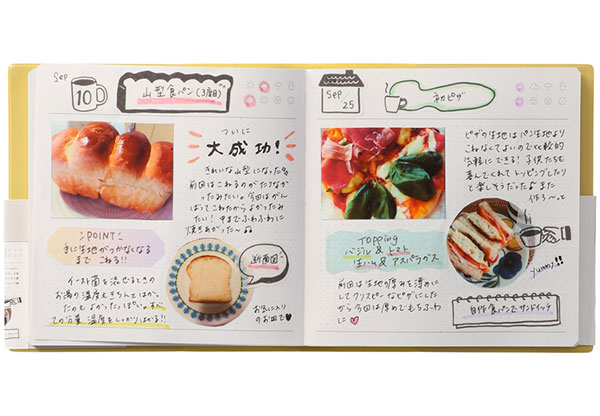 Sep
10
山型食パン(3回目)
ついに
大成功!
きれいな山型になった!!
前回はこねるのがたりなか
ったみたい。今回はがん
ばってこねたからよかったみ
たい!中までふわふわに
焼きあがった〜♪
POINT
手に生地がつかなくなる
まで こねる!!
イースト菌を混ぜるときの
お湯の温度もきちんとはかっ
たのもよかったっぽい。
の分量、温度をしっかりはかる!!
断面図
お気に入り
のお皿で
Sep
25
初ピザ
ピザの生地はパン生地より
こねなくてよいので比較的
気軽にできる!子供たちも
喜んでくれてトッピングしたり
と楽しそうだった♪また
作ろ〜っと
Topping
バジル & トマト
生ハム & アスパラガス
前回は生地の厚みを薄めに
してクリスピーなピザにした
から今回は厚めでもちふわ
に
Yummy!!
自作食パンでサンドイッチ